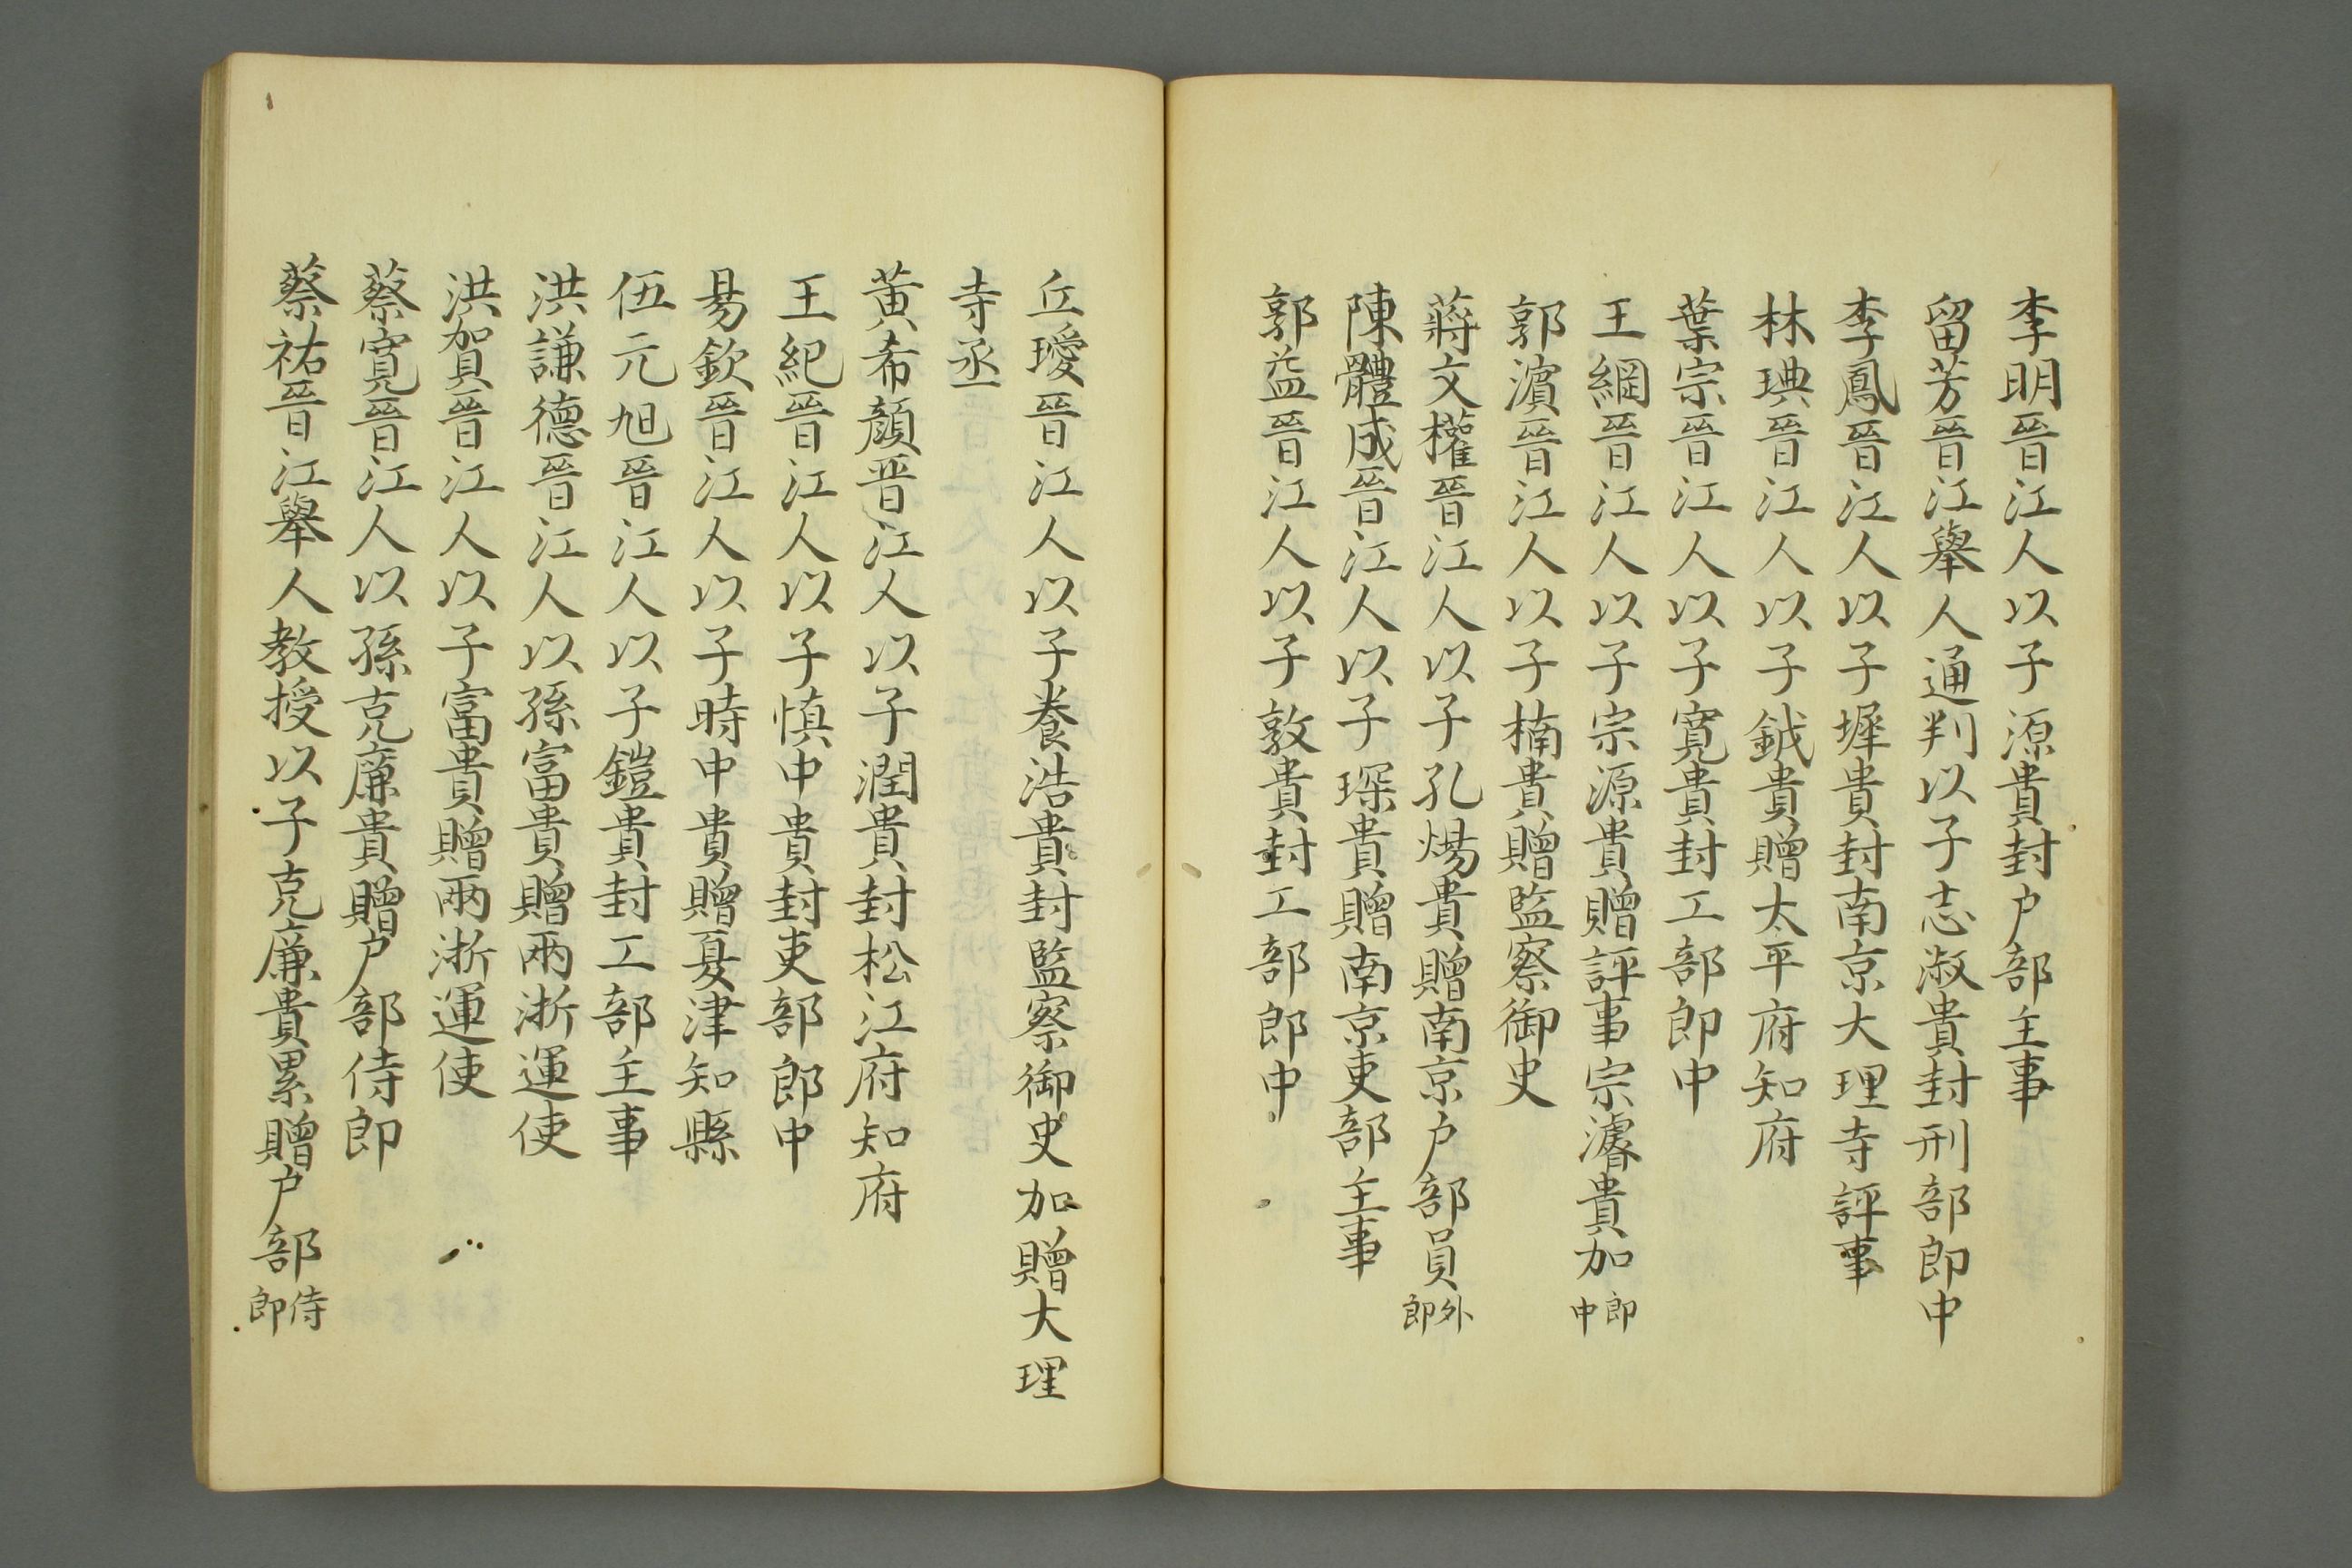 李明晉江人以子源貴封户部主事
留芳晉江舉人通判以子志淑貴封刑部郎中
李鳳晉江人以子墀貴封南京大理寺評事
林琠晉江人以子鉞貴贈太平府知府
葉宗晉江人以子寬貴封工部郎中
王綱晉江人以子宗源貴贈評事宗濬貴加郎中
郭濵晉江人以子楠貴贈監察御史
蔣文權晉江人以子孔煬貴贈南京户部員外郎
陳體成晉江人以子琛貴贈南京吏部主事
郭益晉江人以子敦貴封工部郎中
丘璦晉江人以子養浩貴封監察御史加贈大理
寺丞
黃希顔晋江人以子潤貴封松江府知府
王紀晉江人以子慎中貴封吏部郎中
易欽晉江人以子時中貴贈夏津知縣
伍元旭晉江人以子鎧貴封工部主事
洪謙德晉江人以孫富貴贈兩浙運使
洪賀晉江人以子富貴贈兩浙運使
蔡寬晉江人以孫克廉貴贈户部侍郎
蔡祐晉江舉人教授以子克廉貴累贈户部侍郎